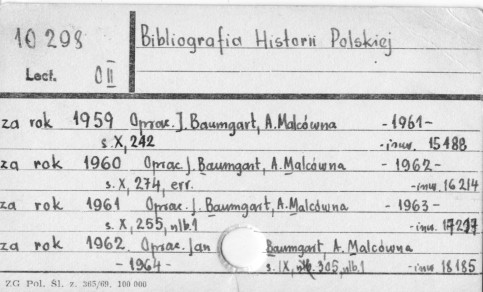 10 298 Bibliografia Historii Polskiej
Lect. O II
za rok 1959 Oprac. J. Baumgart, A. Malcówna - 1961 -
s. X, 242 - inw. 15488
za rok 1960 Oprac. J. Baumgart, A. Malcówna - 1962 -
s. X, 274, err. - inw. 16214
za rok 1961 Oprac. J. Baumgart, A. Malcówna - 1963 -
s. X, 255, nlb. 1 - inw.
za rok 1962. Oprac. Jan Baumgart, A. Malcówna
- 1964 - s. IX, 305, nlb. 1 - inw. 18185
ZG Pol. Śl. z. 365/69. 100 000